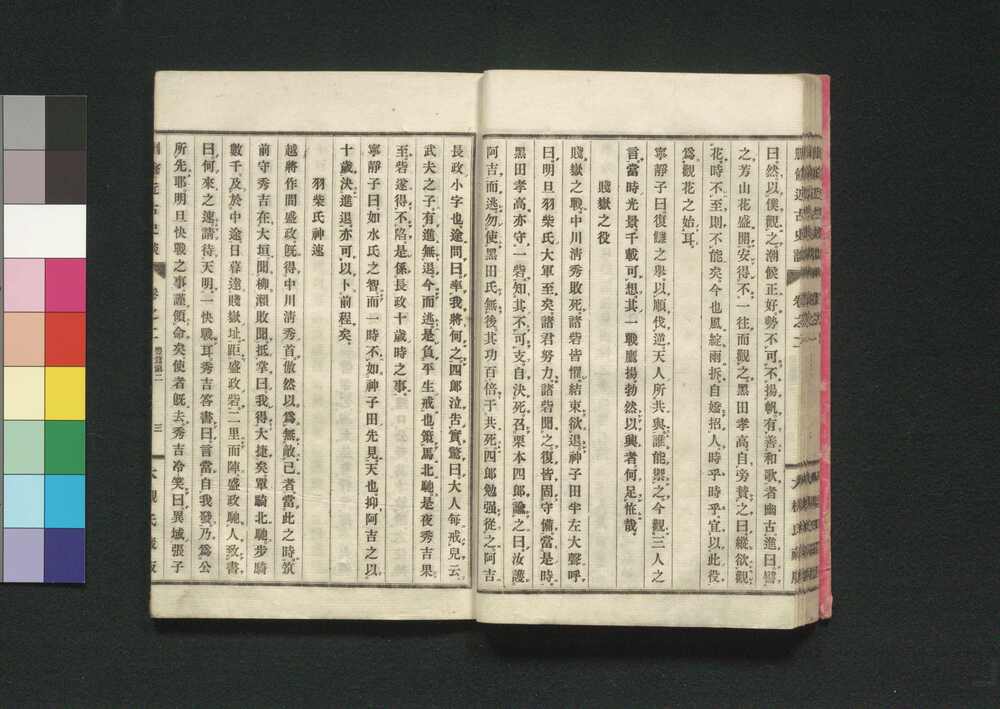 曰然以僕觀之潮候正好勢不可不揚帆有善和歌者幽古進曰譬
之芳山花盛開安得不一往而觀之黑田孝高自旁贊之曰縱欲觀
花時不至則不能矣今也風綻雨拆自招人時乎時乎宜以此役
爲觀花之始耳
寧靜子曰復讎之舉以順伐逆天人所共與誰能禦之今觀三人之
言當時光景千載可想其一戰鷹揚勃然以興者何足怪哉
賤嶽之役
賤嶽之戰中川淸秀敗死諸砦皆懼結束欲退神子田半左大聲呼
曰明旦羽柴氏大軍至矣諸君努力諸砦聞之復皆固守備當是時
黑田孝高亦守一砦知其不可支自決死召栗本四郎諭之曰汝護
阿吉而逃勿使黑田氏無後其功百倍于共死四郎勉强從之阿吉
長政小字也途問曰率我將何之四郎泣吿實驚曰大人每戒兒云
武夫之子有進無退今而逃是負平生戒也策馬北馳是夜秀吉果
至砦遂得不陷是係長政十歲時之事
寧靜子曰如水氏之智而一時不如神子田先見天也抑阿吉之以
十歲決進退亦可以卜前程矣
羽柴氏神速
越將作間盛政旣得中川淸秀首傲然以爲無敵己者當此之時筑
前守秀吉在大垣聞柳瀨敗聞抵掌曰我得大捷矣單騎北馳步騎
數千及於中途日暮達賤嶽址距盛政砦二里而陣盛政馳人致書
曰何來之速請待天明一快戰耳秀吉答書曰言當自我發乃爲公
所先耶明旦快戰之事謹領命矣使者旣去秀吉冷笑曰異域張子
近古史談 卷之二 豐篇第二 三 大觀氏藏版